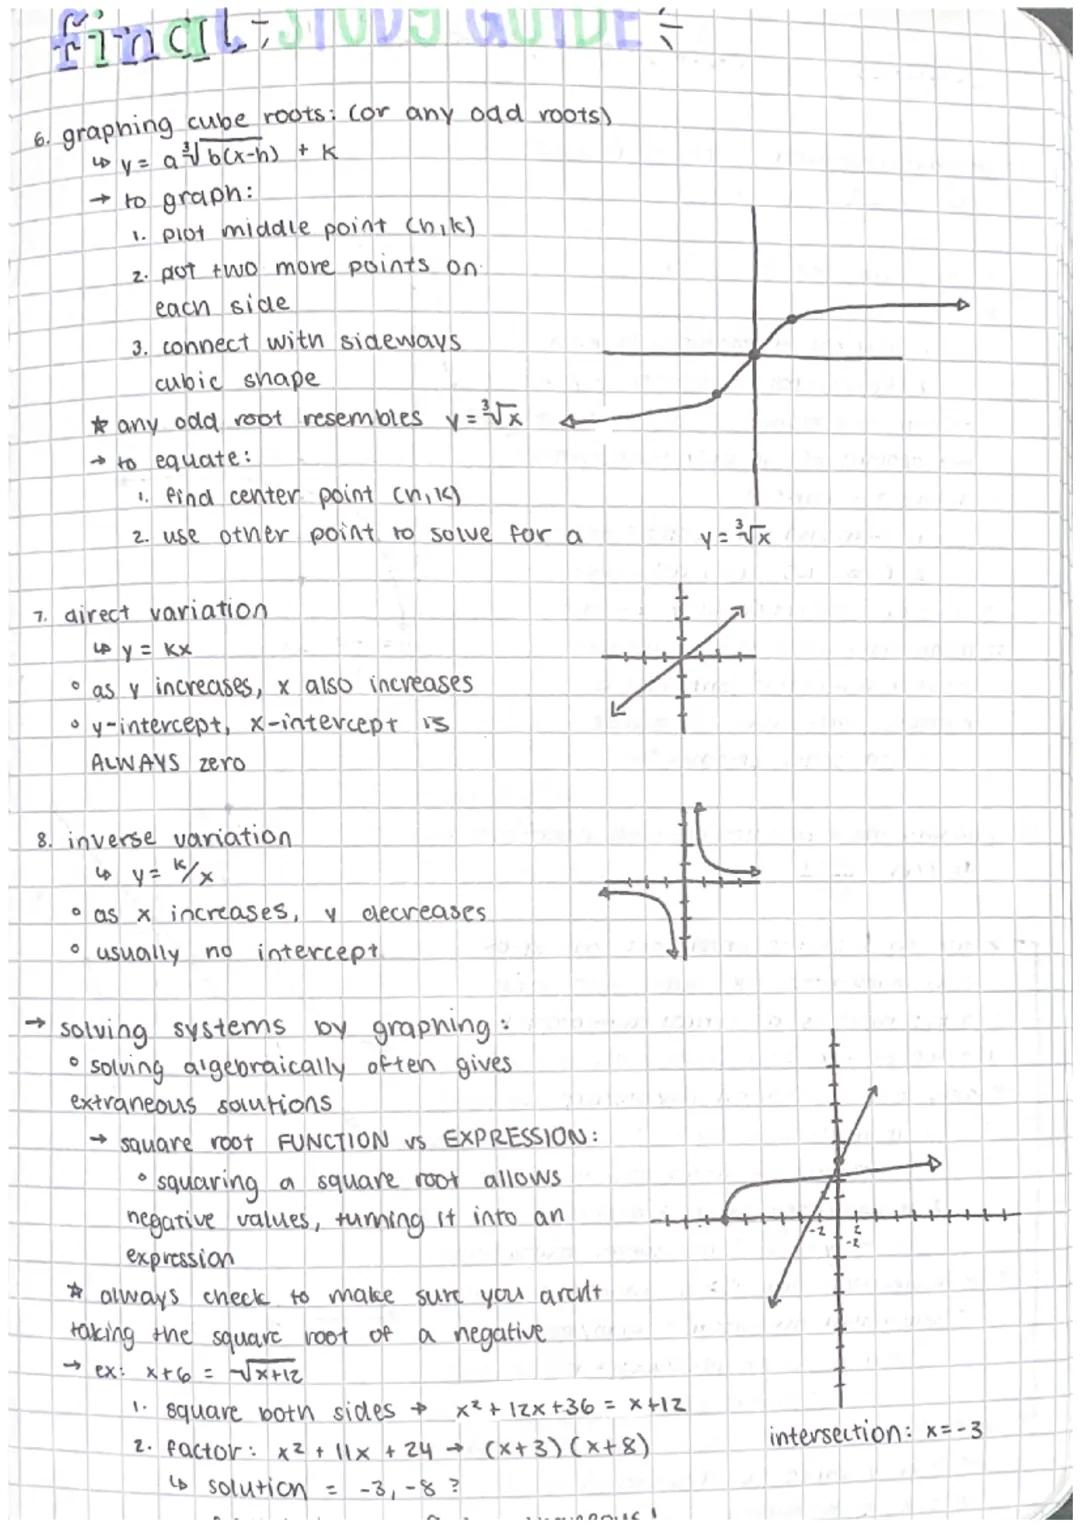 final: STUDY GUIDE
6. graphing cube roots: (or any odd roots)
↳ y = a∛b(x-h) + k
→ to graph:
1. plot middle point (h,k)
2. put two more points on
each side
3. connect with sideways
cubic shape
★ any odd root resembles y = ∛x
→ to equate:
1. find center point (h,k)
2. use other point to solve for a
y = ∛x
7. direct variation
↳ y = kx
° as y increases, x also increases
° y-intercept, x-intercept is
ALWAYS zero
8. inverse variation
↳ y = k/x
° as x increases, y decreases
° usually no intercept
→ solving systems by graphing:
° solving algebraically often gives
extraneous solutions
→ square root FUNCTION vs EXPRESSION:
° squaring a square root allows
negative values, turning it into an
expression
-2 2
-2
★ always check to make sure you aren't
taking the square root of a negative
→ ex: x+6 = √x+12
1. square both sides → x² + 12x + 36 = x+12
2. factor: x² + 11x + 24 → (x+3)(x+8)
↳ solution = -3, -8 ?
intersection: x = -3